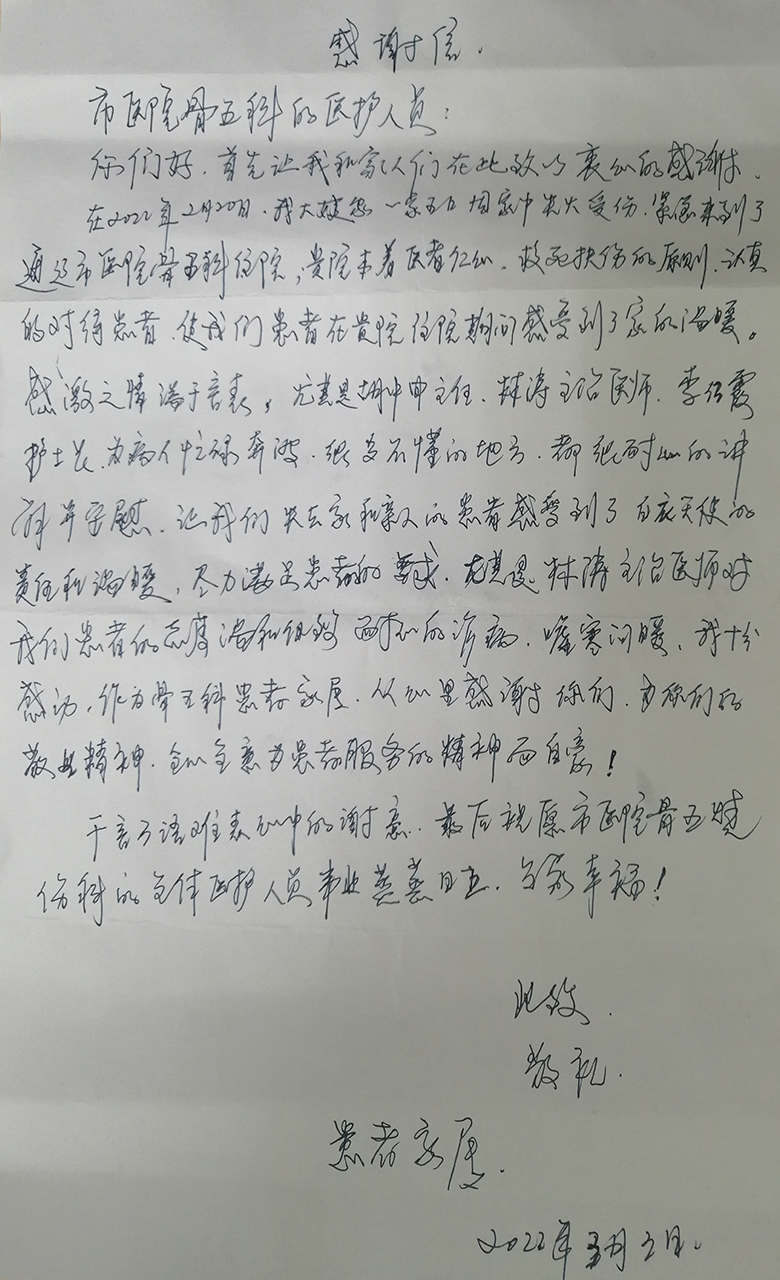 感谢信.
市医院骨五科的医护人员:
你们好.首先让我和家人们在此致以衷心的感谢.
在2022年2月20日.我大一家五口因家中失火受伤.紧急来到了
通辽市医院骨五科住院,贵院本着医者仁心.救死扶伤的原则.认真
的对待患者.使我们患者在贵院住院期间感受到了家的温暖。
感激之情溢于言表,尤其是胡中申主任.林涛主治医师.李红霞
护士长.为病人忙碌奔波.很多不懂的地方.都很耐心的讲
解并安慰.让我们失去家和亲人的患者感受到了白衣天使的
责任和温暖,尽力满足患者的要求.尤其是林涛主治医师对
我们患者的态度温和细致耐心的治病.嘘寒问暖.我十分
感动.作为骨五科患者家属.从心里感谢你们.为你们的
敬业精神.全心全意为患者服务的精神而自豪!
千言万语难表心中的谢意.最后祝愿市医院骨五烧
伤科的全体医护人员事业蒸蒸日上.合家幸福!
此致.
敬礼.
患者家属.
2022年3月2日.